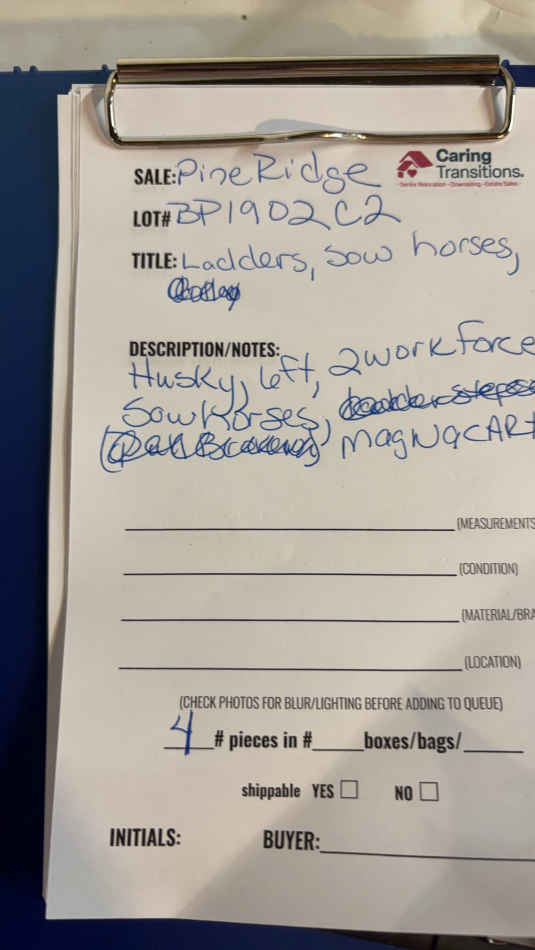 Caring
Transitions.
Senior Relocation · Downsizing · Estate Sales
SALE: Pine Ridge
LOT# BP1902C2
TITLE: Ladders, Sow horses,
DESCRIPTION/NOTES:
Husky, left, 2 workforce
Sowhorses,
MagNaCARt
(MEASUREMENTS
(CONDITION)
(MATERIAL/BRA
(LOCATION)
(CHECK PHOTOS FOR BLUR/LIGHTING BEFORE ADDING TO QUEUE)
4 # pieces in #_____boxes/bags/_____
shippable YES ☐ NO ☐
INITIALS: BUYER: